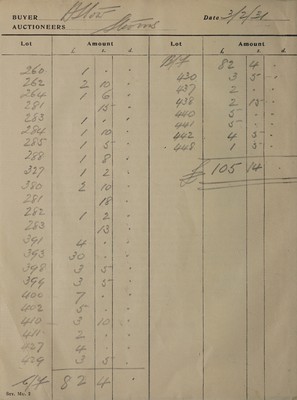 BUYER
Date 3/2/21
AUCTIONEERS Stevens
Lot Amount
£. s. d.
260 1 . .
262 2 10 .
264 1 6 .
281 15 .
283 1 . .
284 1 10 .
285 1 5 .
288 1 8 .
327 1 2 .
380 2 10 .
281 18 .
282 1 2 .
283 13 .
391 4 . .
393 30 . .
398 3 5 .
399 3 5 .
400 7 . .
402 5 . .
410 3 10 .
411 2 . .
427 4 . .
429 3 5 .
C/f 82 4 .
Sev. No. 2
Lot Amount
£. s. d.
B/f 82 4 .
430 3 5 .
437 2 . .
438 2 15 .
440 5 . .
441 5 . .
442 4 5 .
448 1 5 .
£ 105 14 .